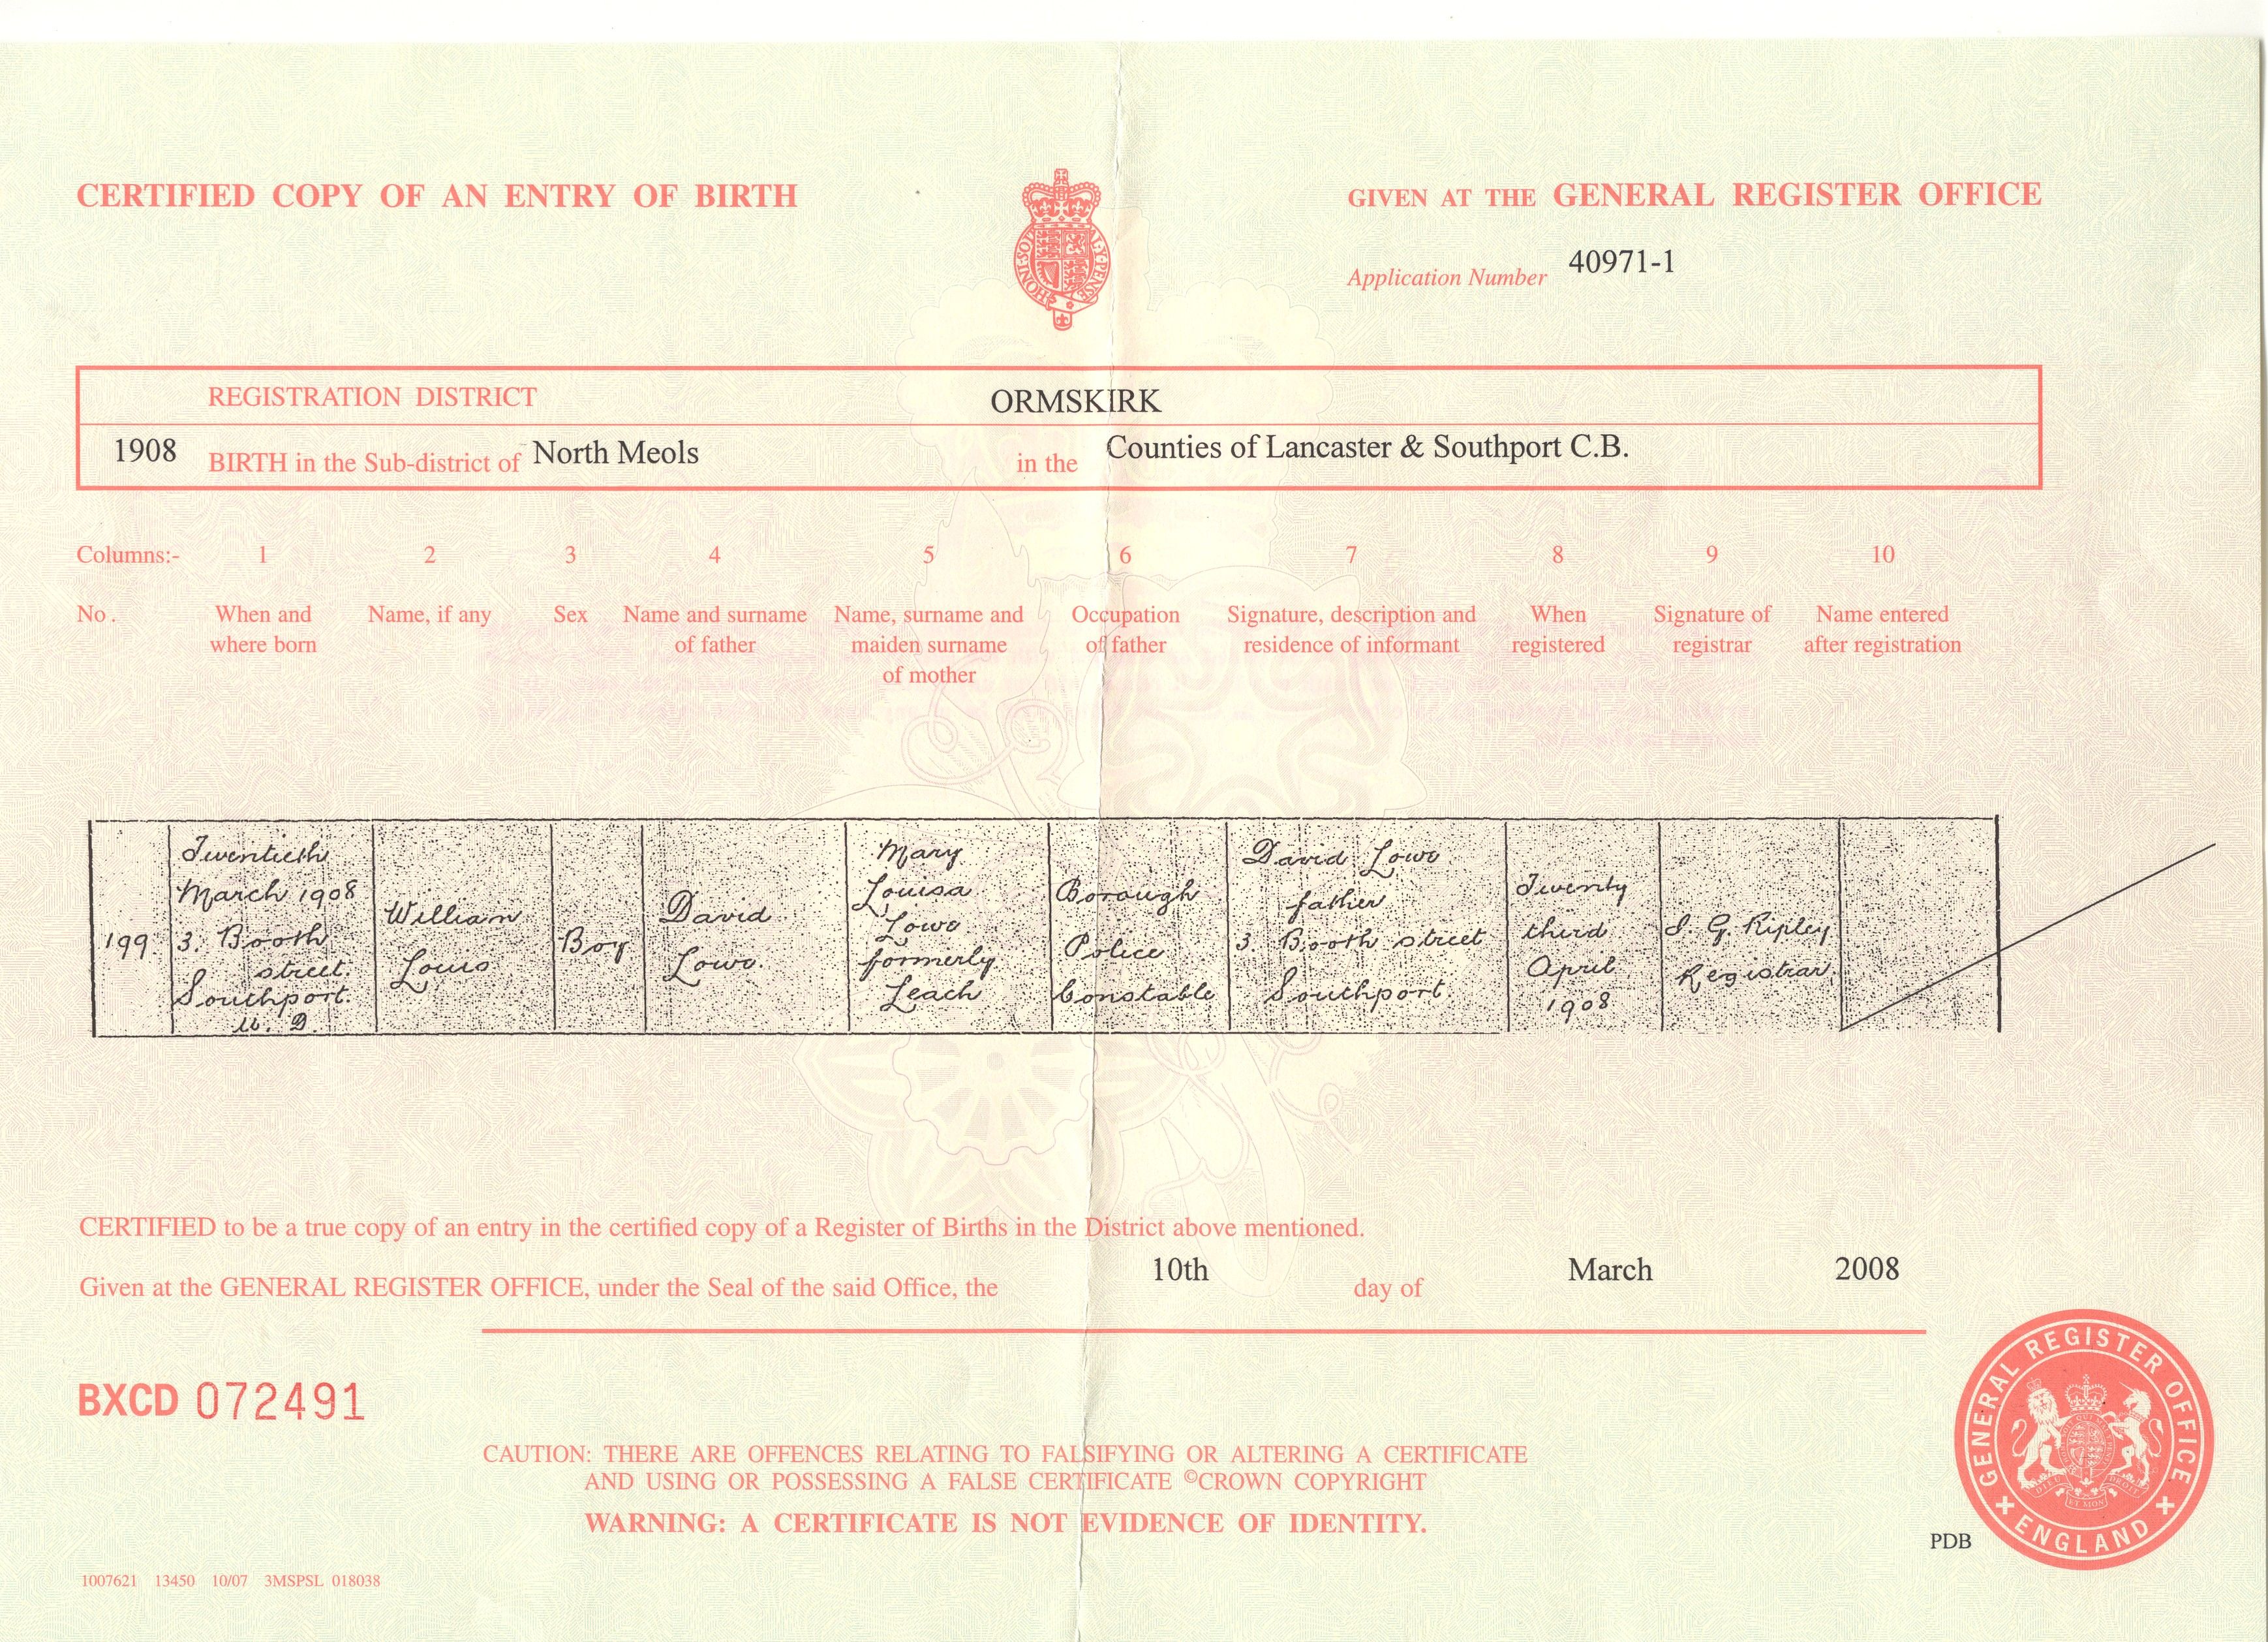 CERTIFIED COPY OF AN ENTRY OF BIRTH
GIVEN AT THE GENERAL REGISTER OFFICE
Application Number 40971-1
REGISTRATION DISTRICT ORMSKIRK
1908 BIRTH in the Sub-district of North Meols in the Counties of Lancaster & Southport C.B.
Columns:- 1 2 3 4 5 6 7 8 9 10
No. When and where born
Name, if any
Sex
Name and surname of father
Name, surname and maiden surname of mother
Occupation of father
Signature, description and residence of informant
When registered
Signature of registrar
Name entered after registration
199
Twentieth
March 1908
3. Booth
street
Southport.
U. D.
William
Louis
Boy
David
Lowe.
Mary
Louisa
Lowe
formerly
Leach
Borough
Police
Constable
David Lowe
father
3. Booth street
Southport
Twenty
third
April
1908
G. Ripley
Registrar.
CERTIFIED to be a true copy of an entry in the certified copy of a Register of Births in the District above mentioned.
Given at the GENERAL REGISTER OFFICE, under the Seal of the said Office, the 10th day of March 2008
BXCD 072491
CAUTION: THERE ARE OFFENCES RELATING TO FALSIFYING OR ALTERING A CERTIFICATE
AND USING OR POSSESSING A FALSE CERTIFICATE ©CROWN COPYRIGHT
WARNING: A CERTIFICATE IS NOT EVIDENCE OF IDENTITY.
GENERAL REGISTER OFFICE
ENGLAND
PDB
1007621 13450 10/07 3MSPSL 018038